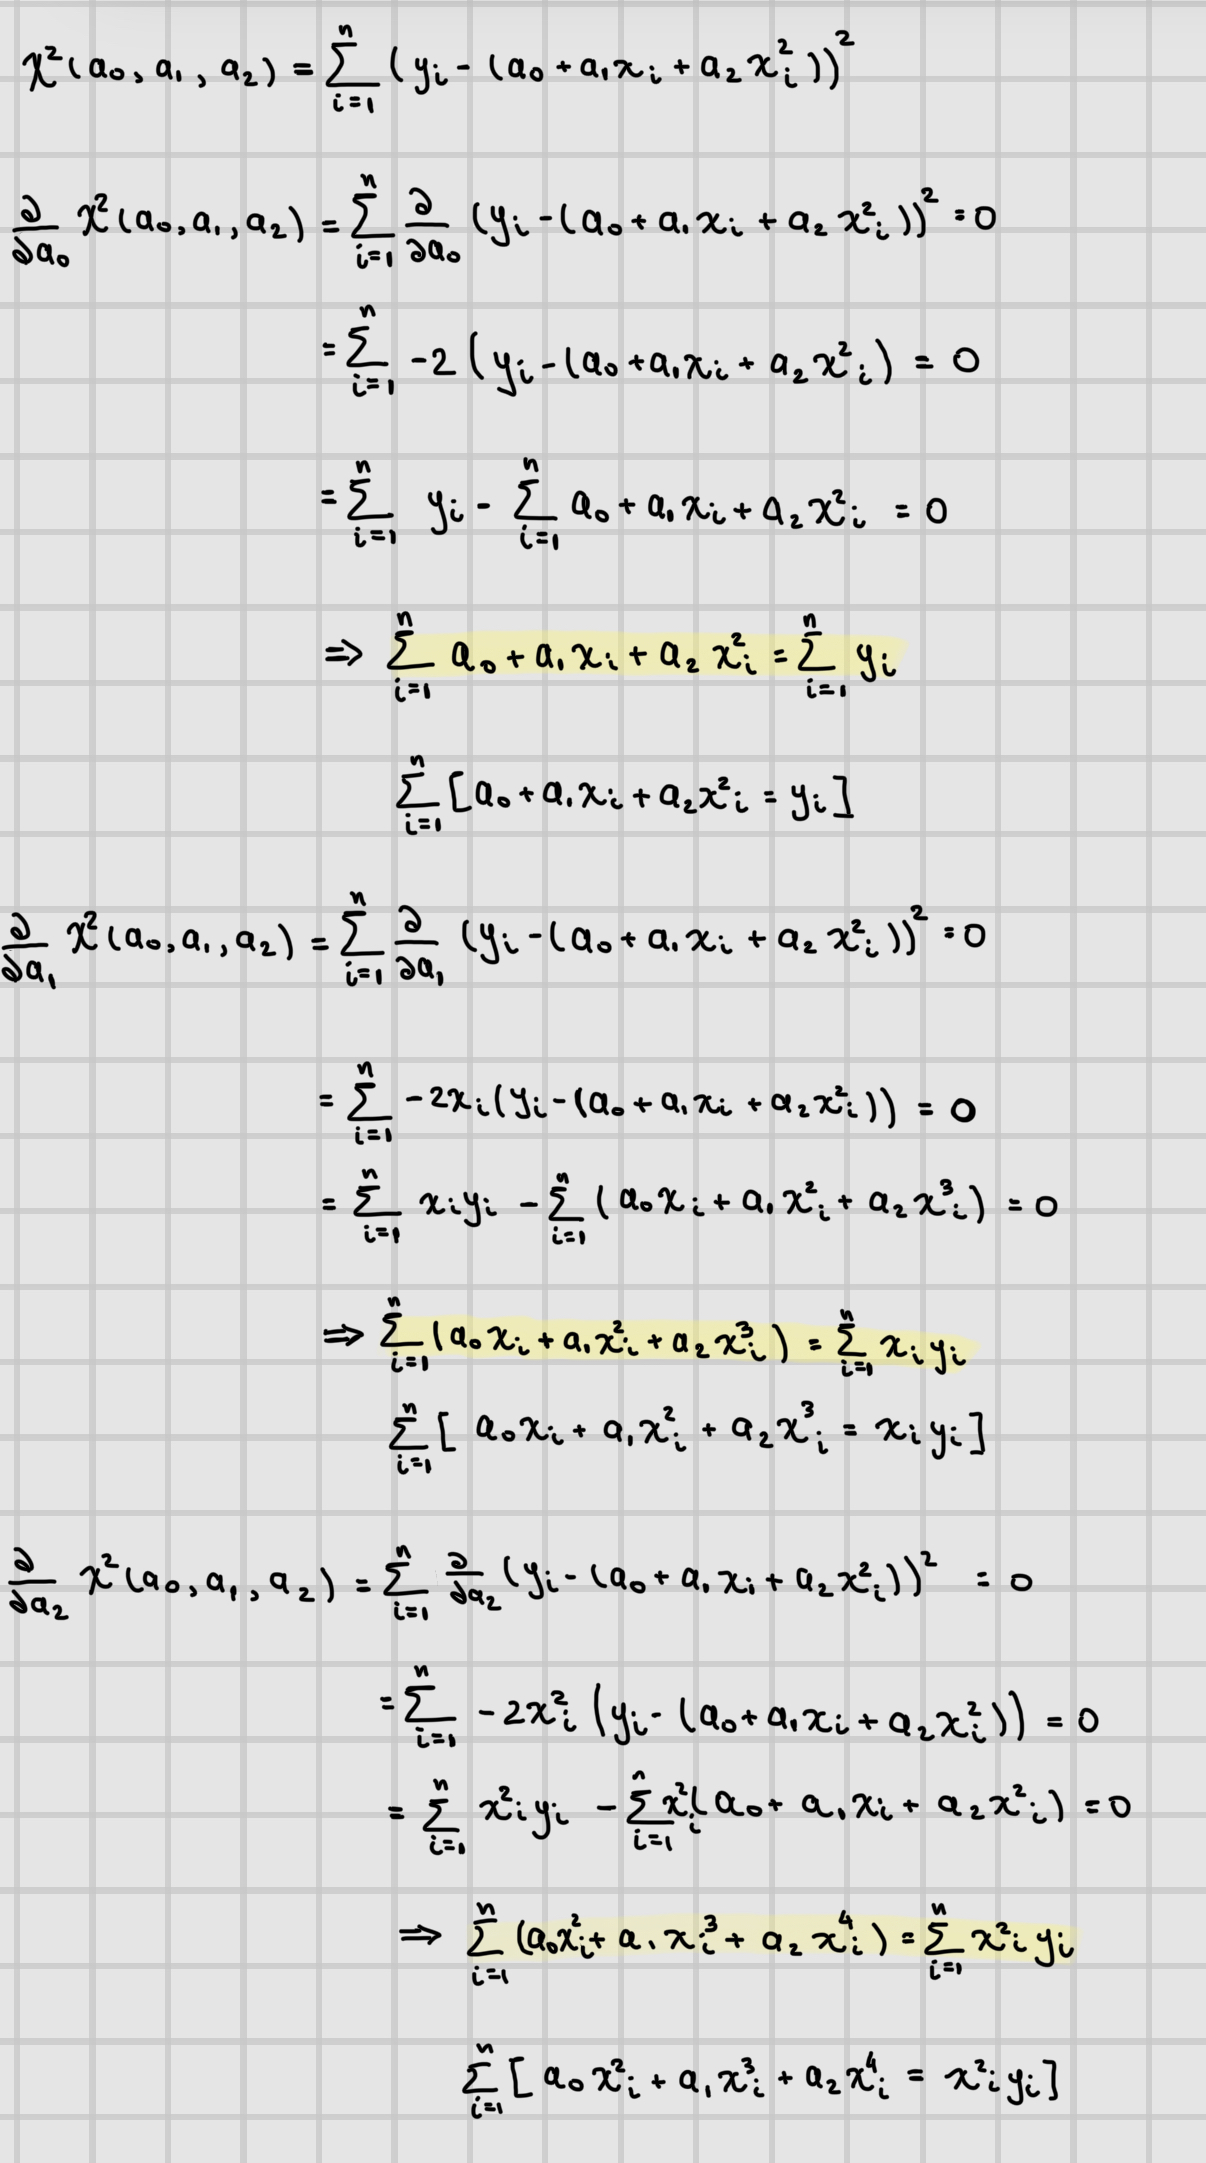 χ²(a₀, a₁, a₂) = ∑ᵢ₌₁ⁿ (yᵢ - (a₀ + a₁xᵢ + a₂x²ᵢ))²
∂/∂a₀ χ²(a₀, a₁, a₂) = ∑ᵢ₌₁ⁿ ∂/∂a₀ (yᵢ - (a₀ + a₁xᵢ + a₂x²ᵢ))² = 0
= ∑ᵢ₌₁ⁿ -2 (yᵢ - (a₀ + a₁xᵢ + a₂x²ᵢ) = 0
= ∑ᵢ₌₁ⁿ yᵢ - ∑ᵢ₌₁ⁿ a₀ + a₁xᵢ + a₂x²ᵢ = 0
⇒ ∑ᵢ₌₁ⁿ a₀ + a₁xᵢ + a₂x²ᵢ = ∑ᵢ₌₁ⁿ yᵢ
∑ᵢ₌₁ⁿ [a₀ + a₁xᵢ + a₂x²ᵢ = yᵢ]
∂/∂a₁ χ²(a₀, a₁, a₂) = ∑ᵢ₌₁ⁿ ∂/∂a₁ (yᵢ - (a₀ + a₁xᵢ + a₂x²ᵢ))² = 0
= ∑ᵢ₌₁ⁿ -2xᵢ(yᵢ - (a₀ + a₁xᵢ + a₂x²ᵢ)) = 0
= ∑ᵢ₌₁ⁿ xᵢyᵢ - ∑ᵢ₌₁ⁿ (a₀xᵢ + a₁x²ᵢ + a₂x³ᵢ) = 0
⇒ ∑ᵢ₌₁ⁿ (a₀xᵢ + a₁x²ᵢ + a₂x³ᵢ) = ∑ᵢ₌₁ⁿ xᵢyᵢ
∑ᵢ₌₁ⁿ [a₀xᵢ + a₁x²ᵢ + a₂x³ᵢ = xᵢyᵢ]
∂/∂a₂ χ²(a₀, a₁, a₂) = ∑ᵢ₌₁ⁿ ∂/∂a₂ (yᵢ - (a₀ + a₁xᵢ + a₂x²ᵢ))² = 0
= ∑ᵢ₌₁ⁿ -2x²ᵢ (yᵢ - (a₀ + a₁xᵢ + a₂x²ᵢ)) = 0
= ∑ᵢ₌₁ⁿ x²ᵢyᵢ - ∑ᵢ₌₁ⁿ x²ᵢ(a₀ + a₁xᵢ + a₂x²ᵢ) = 0
⇒ ∑ᵢ₌₁ⁿ (a₀x²ᵢ + a₁x³ᵢ + a₂x⁴ᵢ) = ∑ᵢ₌₁ⁿ x²ᵢyᵢ
∑ᵢ₌₁ⁿ [a₀x²ᵢ + a₁x³ᵢ + a₂x⁴ᵢ = x²ᵢyᵢ]